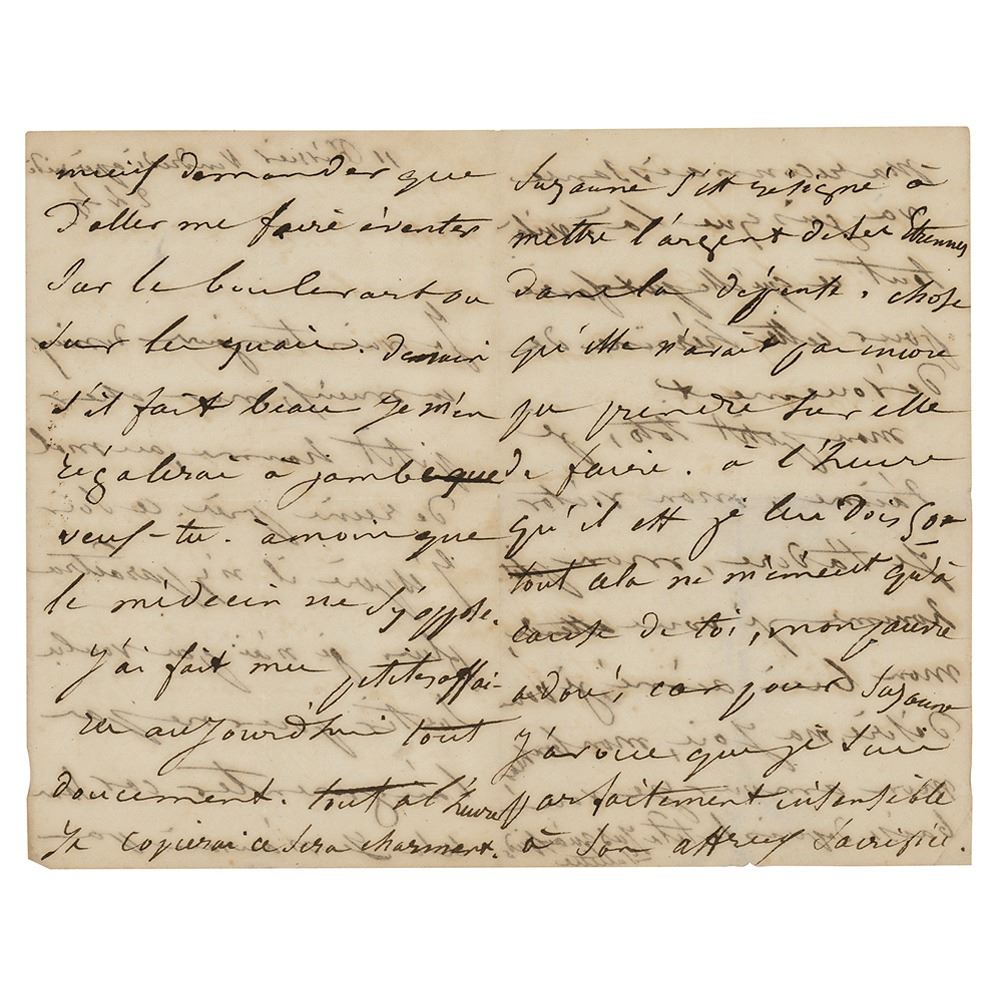 mieux demander que
d'aller me faire éventer
sur le boulevart ou
sur les quais. Demain
s'il fait beau je m'en
régalerai à jambe que
veux-tu. à moins que
le médecin ne s'y oppose.
J'ai fait mes petites affai-
res aujourd'hui tout
doucement. tout à l'heure
Je copierai ce sera charment.
Suzanne s'est résigné à
mettre l'argent de ses Etrennes
dans la dépense. chose
qu'elle n'avait pas encore
pu prendre sur elle
de faire. à l'heure
qu'il est je lui dois
tout cela ne m'émeut qu'à
cause de toi, mon pauvre
adoré, car pour Suzanne
J'avoue que je suis
parfaitement insensible
à son affreux sacrifice.